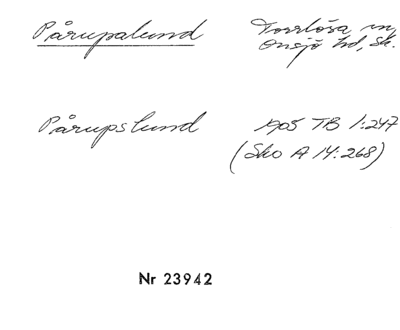 Pårupalund Torrlösa sn,
Onsjö hd, Sk.
Pårupslund 1905 TB 1:247
(Sko A 14:268)
Nr 23942